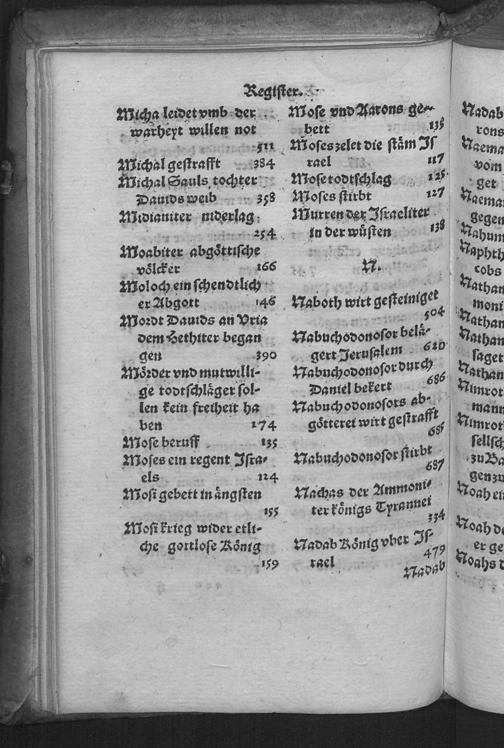 Register.
Micha leidet vmb der
warheyt willen not
511
Michal gestrafft 384
Michal Sauls tochter
Dauids weib 358
Midianiter niderlag
254
Moabiter abgöttische
völcker 166
Moloch ein schendtlich
er Abgott 146
Mordt Dauids an Vria
dem Hethiter began
gen 390
Mörder vnd mutwilli-
ge todtschläger sol-
len kein freiheit ha
ben 174
Mose beruff 135
Moses ein regent Isra-
els 124
Mosi gebett in ängsten
155
Mosi krieg wider etli-
che gottlose König
159
Mose vnd Aarons ge-
bett 135
Moses zelet die stäm Is
rael 117
Mose todtschlag 125
Moses stirbt 127
Murren der Israeliter
in der wüsten 138
N.
Naboth wirt gesteiniget
504
Nabuchodonosor belä-
gert Jerusalem 620
Nabuchodonosor durch
Daniel bekert 686
Nabuchodonosors ab-
götterei wirt gestrafft
685
Nabuchodonosor stirbt
687
Nachas der Ammoni-
ter königs Tyrannei
334
Nadab König vber Is-
rael 479
Nadab
Nadab
rons
Naema
vom
get
Naeman
gegen
Nahum
Naphth
cobs
Nathan
moni
Nathan
Nathan
saget
Nathan
Nimrot
mann
Nimrot
sellsch
zu Ba
gen zu
Noah ein
Noah de
er ge
Noahs d